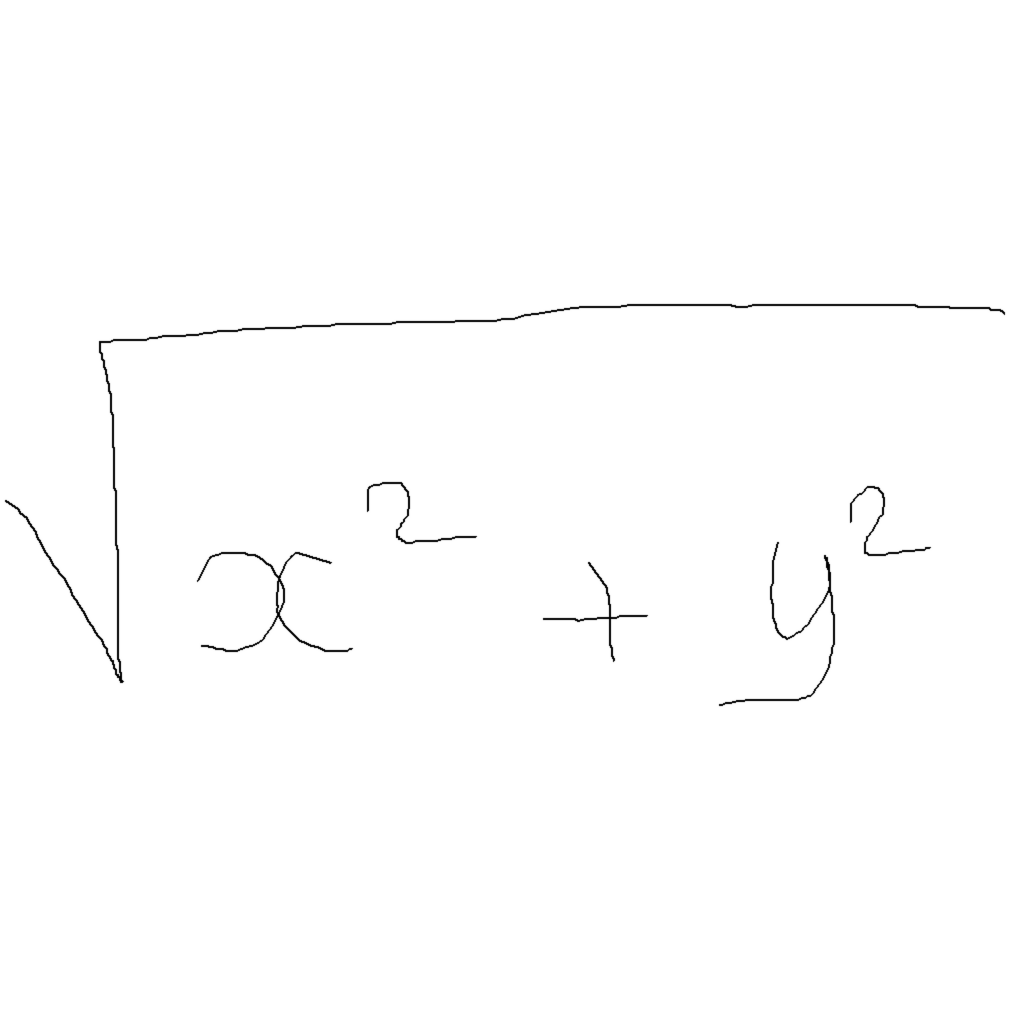 √(x² + y²)